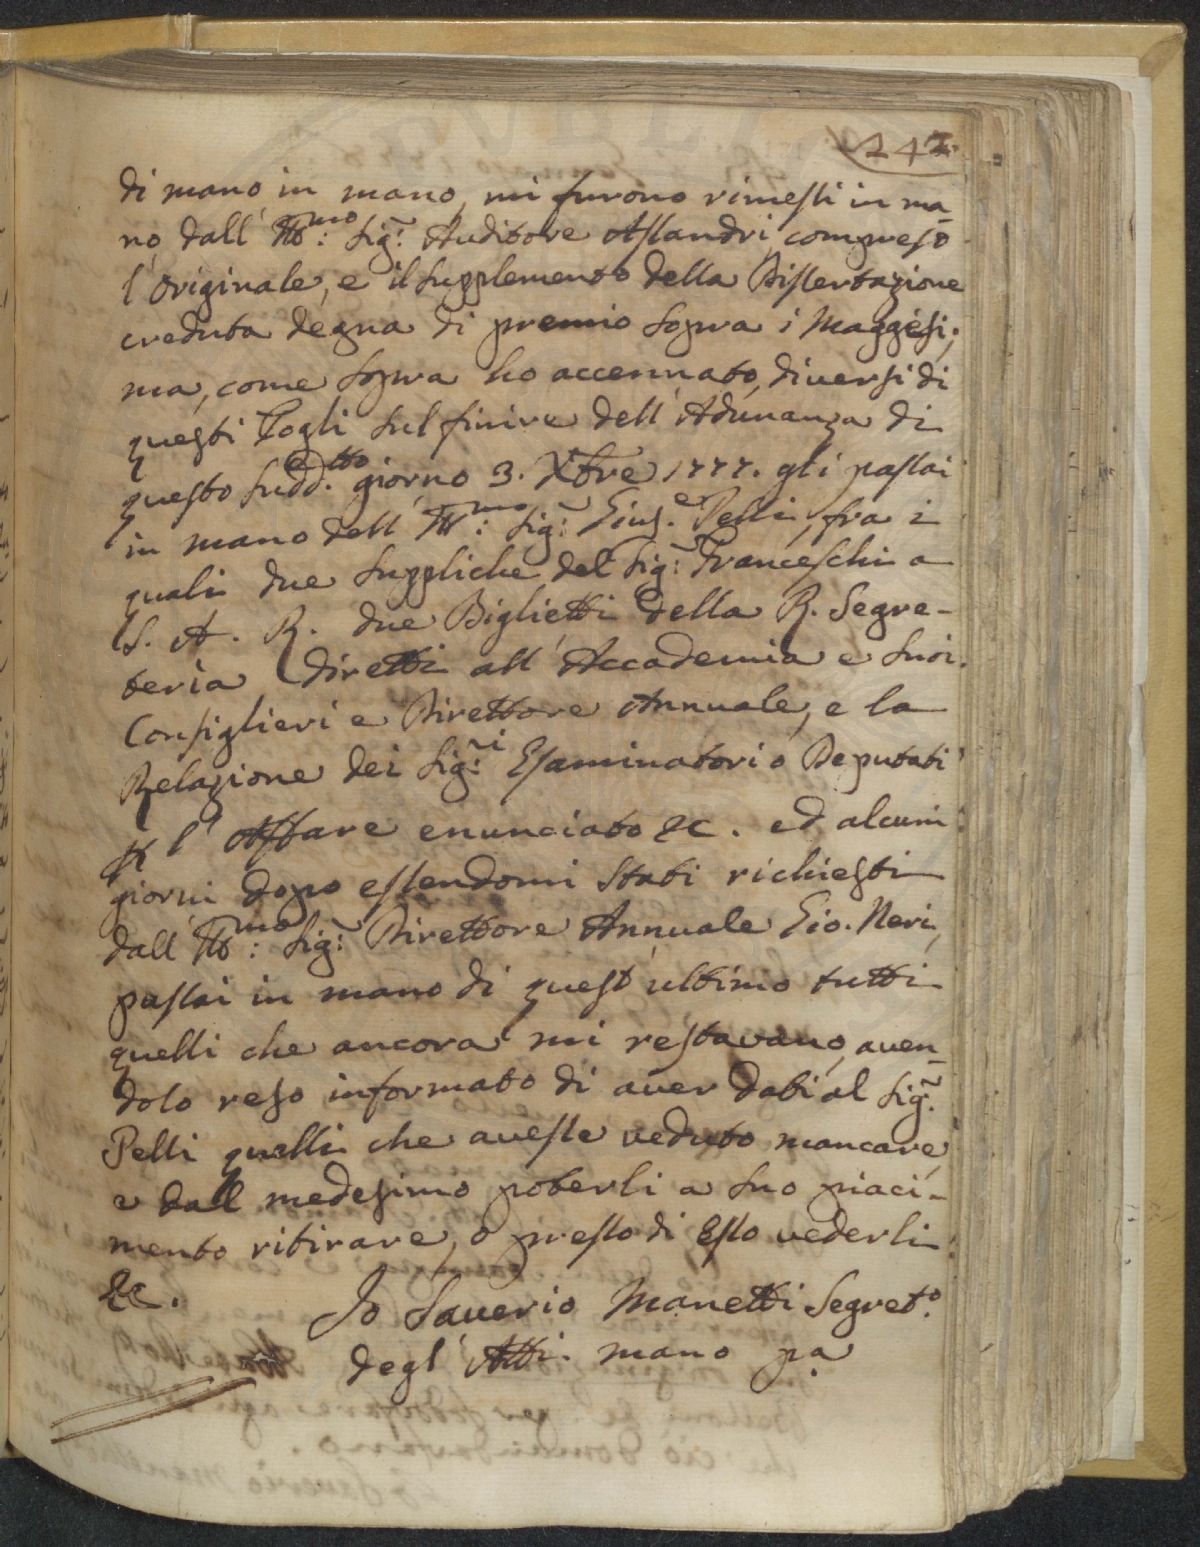 242.
di mano in mano, mi furono rimessi in ma-
no, dall' Ill:mo Sig:r Auditore Aslandri, compreso
l'Originale, e il Supplemento della Dissertazione
creduta degna di premio sopra i Maggesi;
ma, come sopra ho accennato, diversi di
questi Fogli sul finire dell' Adunanza di
questo sudd.etto giorno 3. Xbre 1777. gli passai
in mano dell' Ill:mo Sig:r Gius.e Pelli, fra i
quali due suppliche del Sig:r Franceschi a
S. A. R. due Biglietti della R. Segre-
teria diretti all' Accademia e suoi
Consiglieri e Direttore Annuale, e la
Relazione dei Sig:ri Esaminatori o Deputati
p l' Affare enunciato &c. ed alcuni
giorni dopo essendomi stati richiesti
dall' Ill:mo Sig:r Direttore Annuale Gio. Neri,
passai in mano di quest' ultimo tutti
quelli che ancora mi restavano, aven-
dolo reso informato di aver dati al Sig:r
Pelli quelli che avesse veduto mancare,
e dal medesimo poterli a suo piaci-
mento ritirare, o presso di Esso vederli
&c.
Io Saverio Manetti Segret.o
degl' Atti mano pa